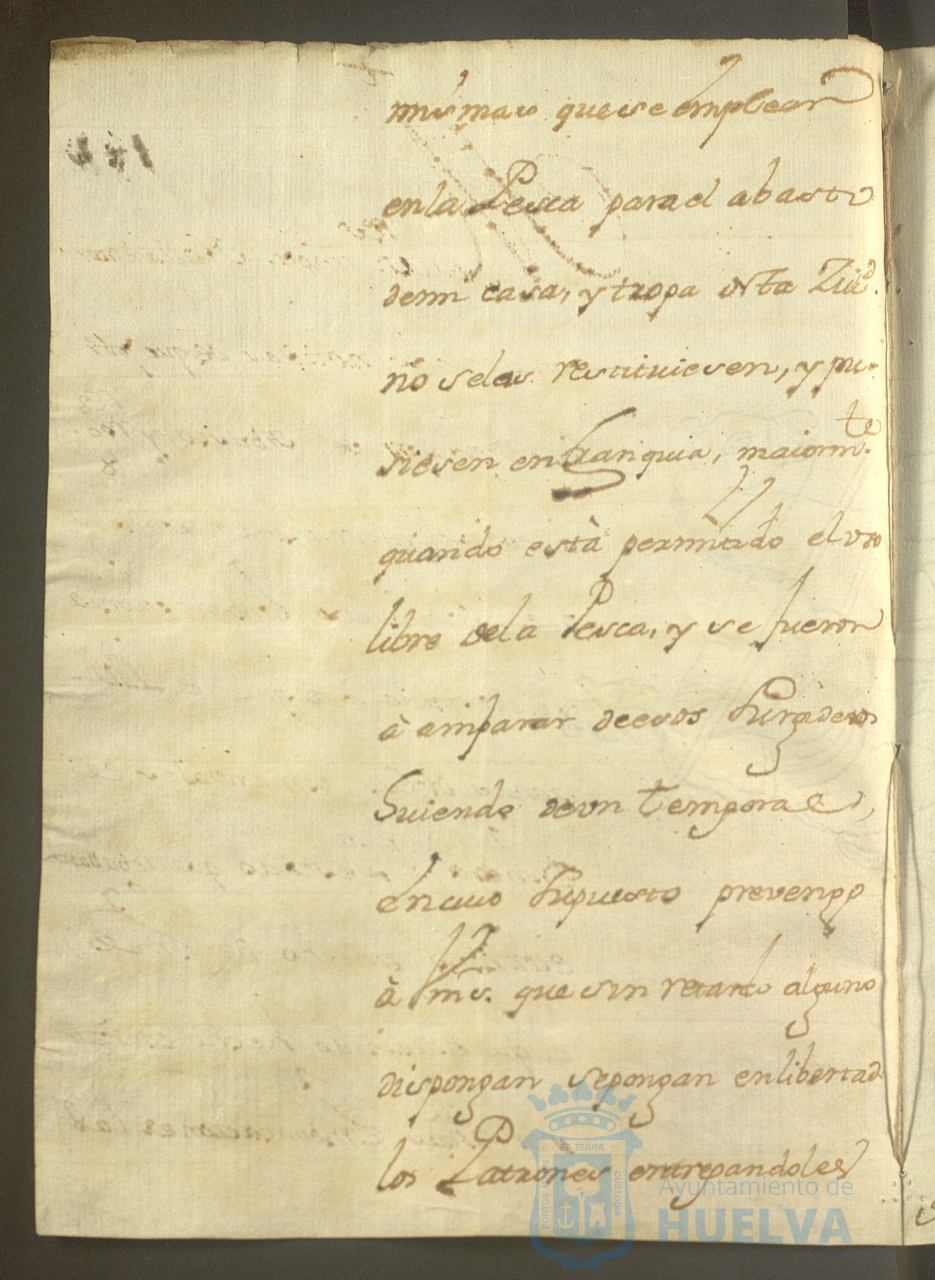 mismas que se emplean
en la Pesca para el abasto
de mi casa, y tropa desta Ziud.
no se les restituiesen, y pu-
siesen en franquia, maiormte
quando està permitido el vso
libre de la Pesca, y se fueron
à amparar de esos Surgideros
huiendo de vn temporal,
en cuio supuesto prevengo
à Vms. que sin retardo alguno
dispongan se pongan en libertad
los Patrones entregandoles
Ayuntamiento de
HUELVA
PORTUS
TERRÆ
CUSTODIA